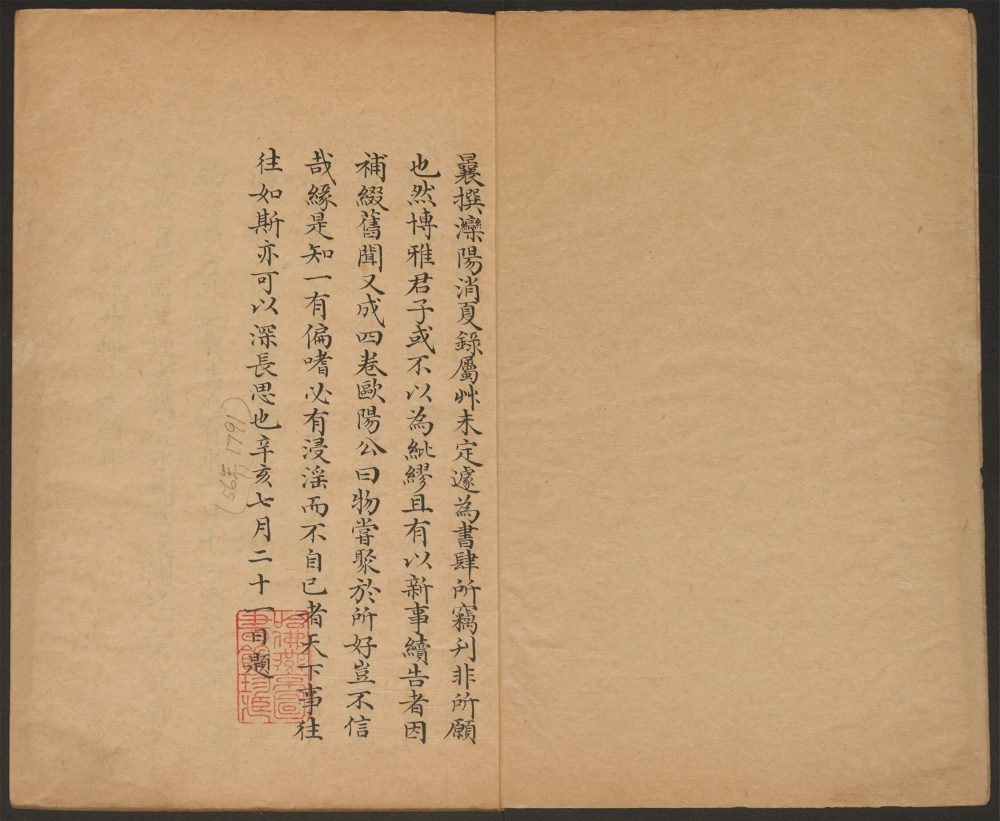 曩撰灤陽消夏錄屬艸未定遽為書肆所竊刋非所願
也然博雅君子或不以為紕繆且有以新事續告者因
補綴舊聞又成四卷歐陽公曰物嘗聚於所好豈不信
哉緣是知一有偏嗜必有浸淫而不自已者天下事往
往如斯亦可以深長思也辛亥七月二十一日題
(56年 1791)
哈佛燕京圖
書館珍藏